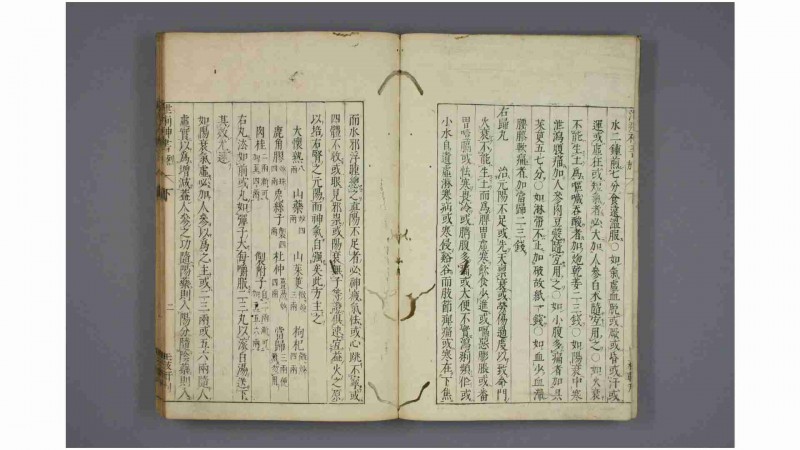 水二鍾煎七分食遠溫服○如氣虛血脫或厥或昏或汗或
運或虛狂或短氣者必大加人參白朮隨宜用之○如火衰
不能生土爲嘔噦吞酸者加炮乾薑二三錢○如陽衰中寒
泄瀉腹痛加人參肉豆蔻隨宜用之○如小腹多痛者加吳
茱萸五七分○如淋帶不止加破故紙一錢○如血少血滯
腰膝軟痛者加當歸二三錢
右歸丸 治元陽不足或先天稟衰或勞傷過度以致命門
火衰不能生土而爲脾胃虛寒飲食少進或嘔惡膨脹或番
胃噎膈或怯寒畏冷或臍腹多痛或大便不實瀉痢頻作或
小水自遺虛淋寒疝或寒侵谿谷而肢節痺痛或寒在下焦
而水邪浮腫總之真陽不足者必神疲氣怯或心跳不寧或
四體不收或眼見邪祟或陽衰無子等證俱速宜益火之原
以培右腎之元陽而神氣自強矣此方主之
大懷熟八兩 山藥炒四兩 山茱萸微炒三兩 枸杞微炒四兩
鹿角膠炒珠四兩 菟絲子製四兩 杜仲薑湯炒四兩 當歸三兩便溏勿用
肉桂二兩 製附子
右丸法如前或丸如彈子大每嚼服二三丸以滾白湯送下
其效尤速
如陽衰氣虛必加人參以爲之主或二三兩或五六兩隨人
虛實以爲增減蓋人參之功隨陽藥則入陽分隨陰藥則入